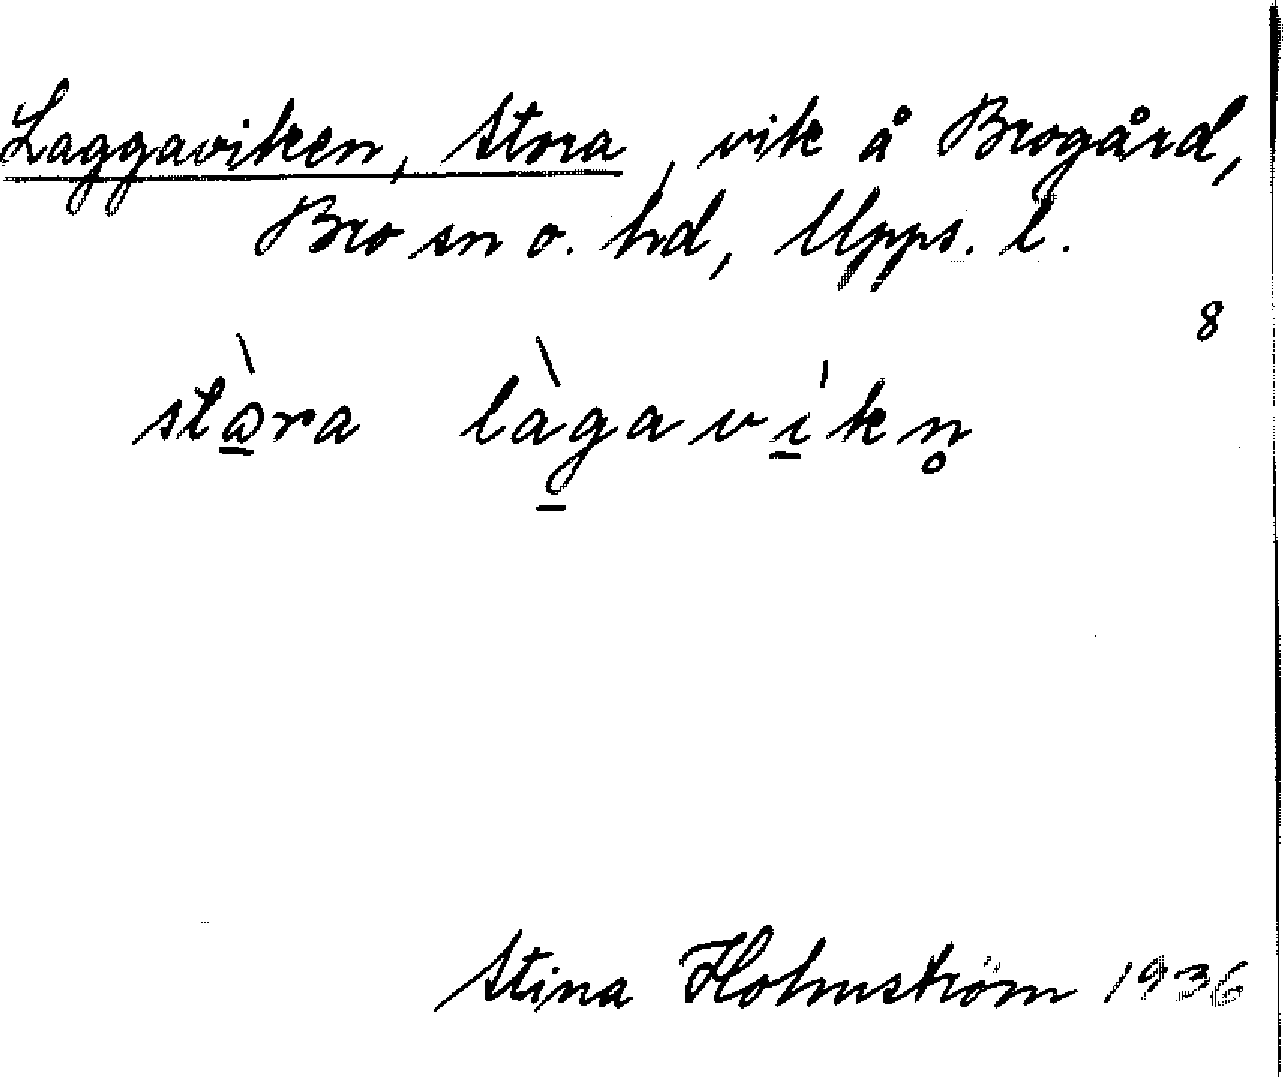 Laggaviken, Stora, vik å Brogård,
Bro sn o. hd, Upps. l.
8
stɷ̠̀ra là̀g̠aví̠kn̥
Stina Holmström 1936